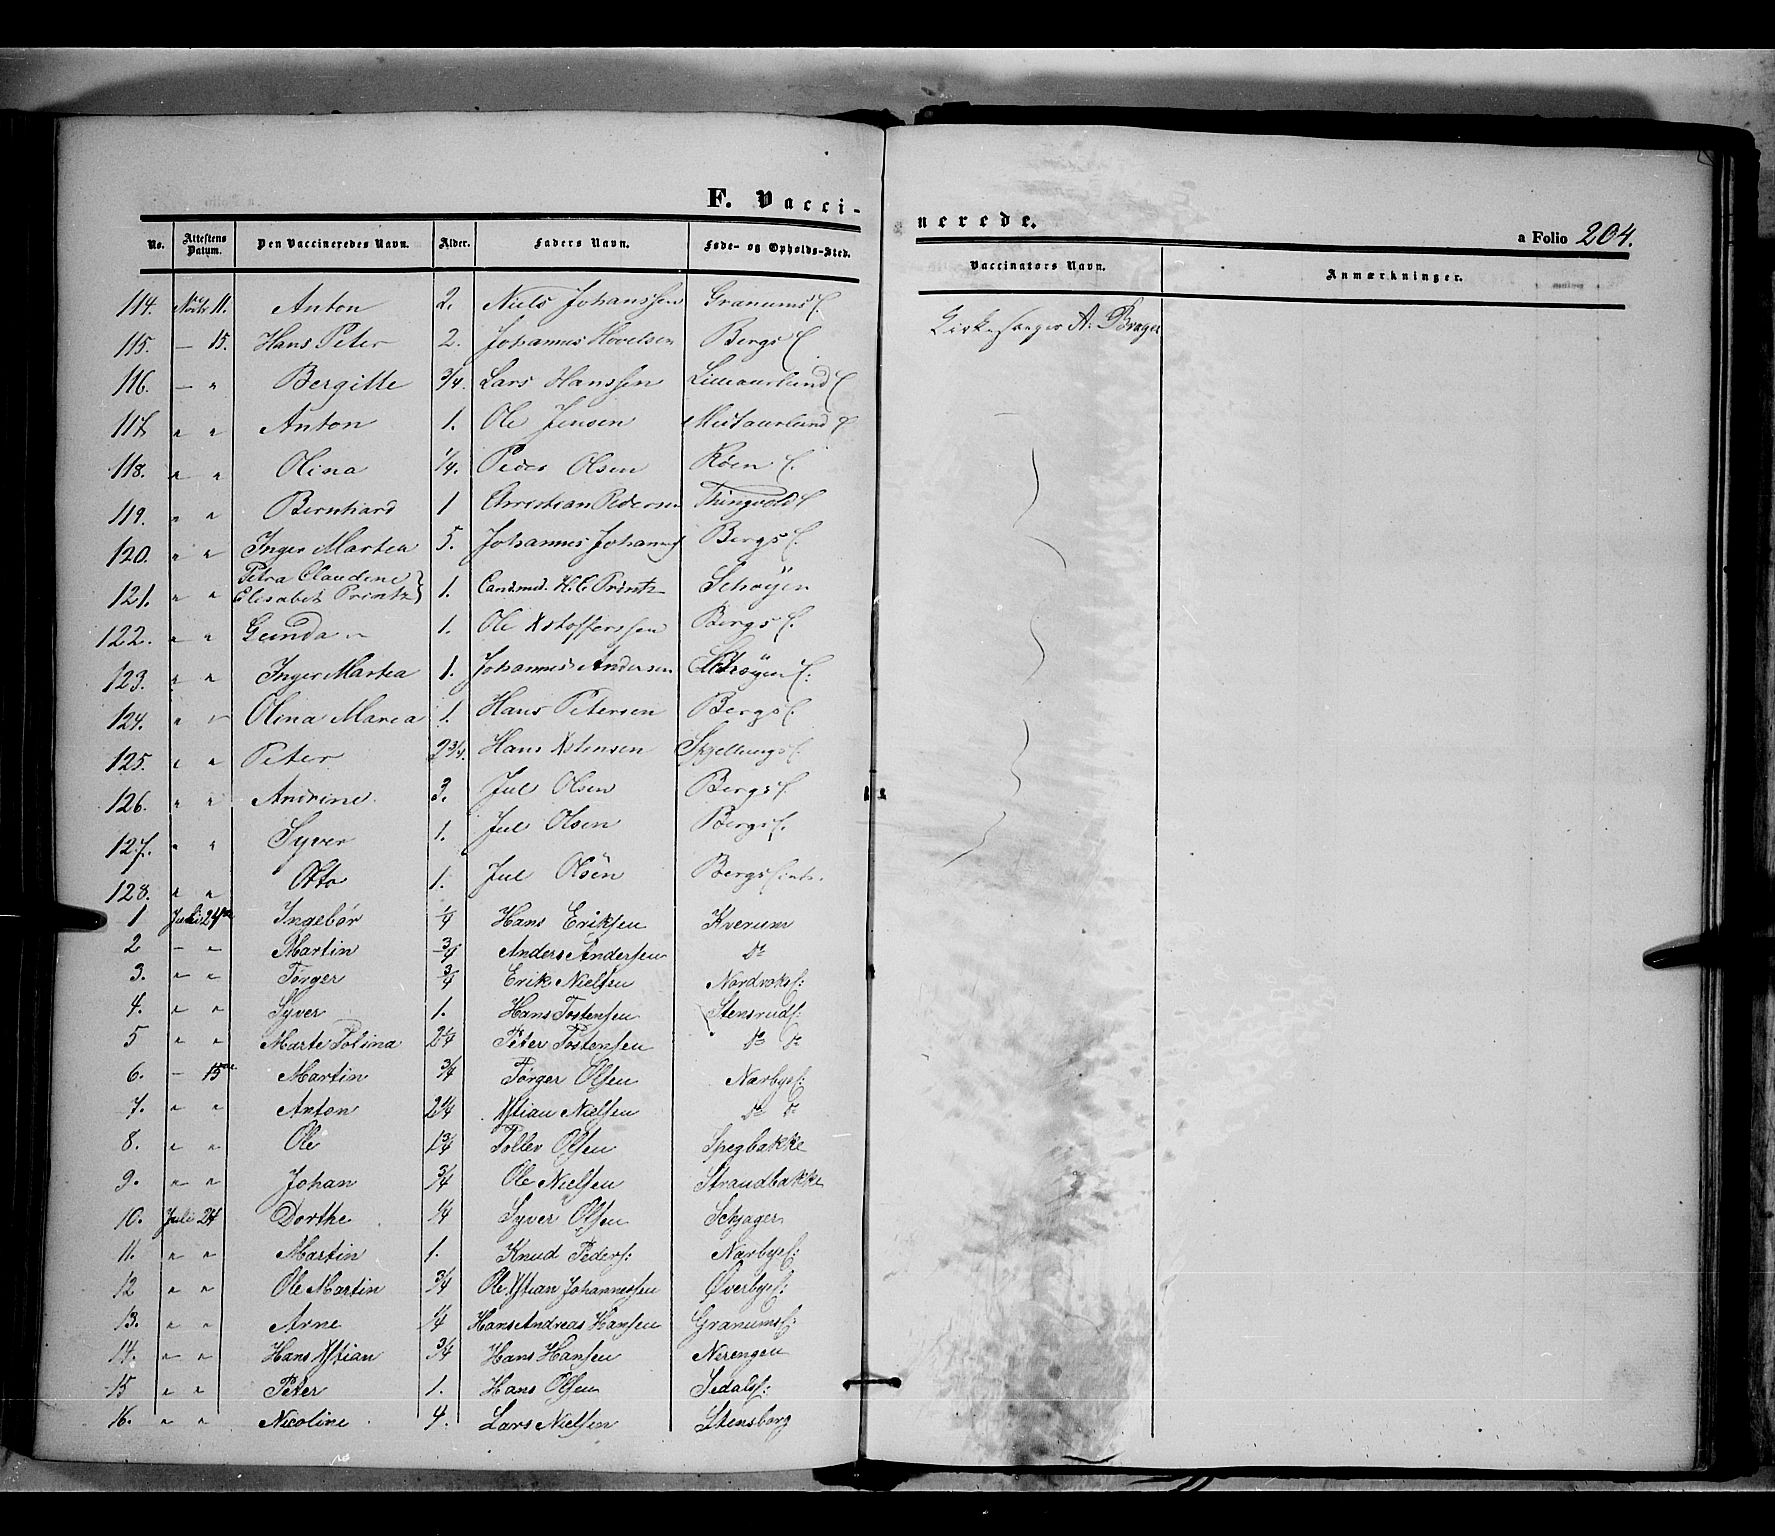 F. Vacci-
nerede.
a Folio 204.
No. Attestens Datum. Den Vaccineredes Navn. Alder. Faders Navn. Føde- og Opholds-Sted. Vaccinators Navn. Anmærkninger.
114. 11. Anton 2. Niels Johanssen Granums
Kirkesanger A. Brager
115. — 15. Hans Peter 2. Johannes Hovelsen Bergs
116. — " Bergitte 3/4. Lars Hanssen
117. " " Anton 1. Ole Jensen
118. " " Olina 1/4. Peder Olsen Röen
119. " " Bernhard 1 Christian Pedersen Thingvold
120. " " Inger Martea 5. Johannes Bergs
Petra Claudine
121. " " Elisabet Printz } 1. Cand. med. H. C. Printz Schöyen
122. " " Gunda 1. Ole Xstofferssen Bergs
123. " " Inger Martea 1. Johannes Andersen
124. " " Olina Marea 1. Hans Petersen Bergs
125. " " Peter 2 3/4. Hans Xstensen
126. " " Andrine 3. Jul Olsen Bergs
127. " " Syver 1. Jul Olsen Bergs
128. " " Otto 1. Jul Olsen Bergs
1 24 Ingebør 1/4 Hans Eriksen Kverum
2 — " Martin 3/4 Anders Andersen do
3. — " Torger 3/4 Erik Nielsen
4. " " Syver 1. Hans Tostensen Stensruds:
5 " " Marte Polina 2 1/4 Peter Tostensen do do
6. — 15 Martin 3/4 Torger Olsen Nærbyes:
7. " " Anton 2 1/4 Xstian Nielsen do do
8. " " Ole 1 3/4 Tollev Olsen Spegbakke
9. " " Johan 3/4 Ole Nielsen Strandbakke
10. Juli 24 Dorthe 1/4 Syver Olsen Schjager
11. " " Martin 1. Knud Peders: Nærbyes:
12 " " Ole Martin 3/4 Ole Xstian Johannessen Øverbyes:
13. " " Arne 1/4 Hans Andreas Hansen Granums:
14. " " Hans Xstian 3/4 Hans Hansen Nerengen
15 " " Peter 1. Hans Olsen Sedals:
16. " " Nicoline 4. Lars Nielsen Stensborg